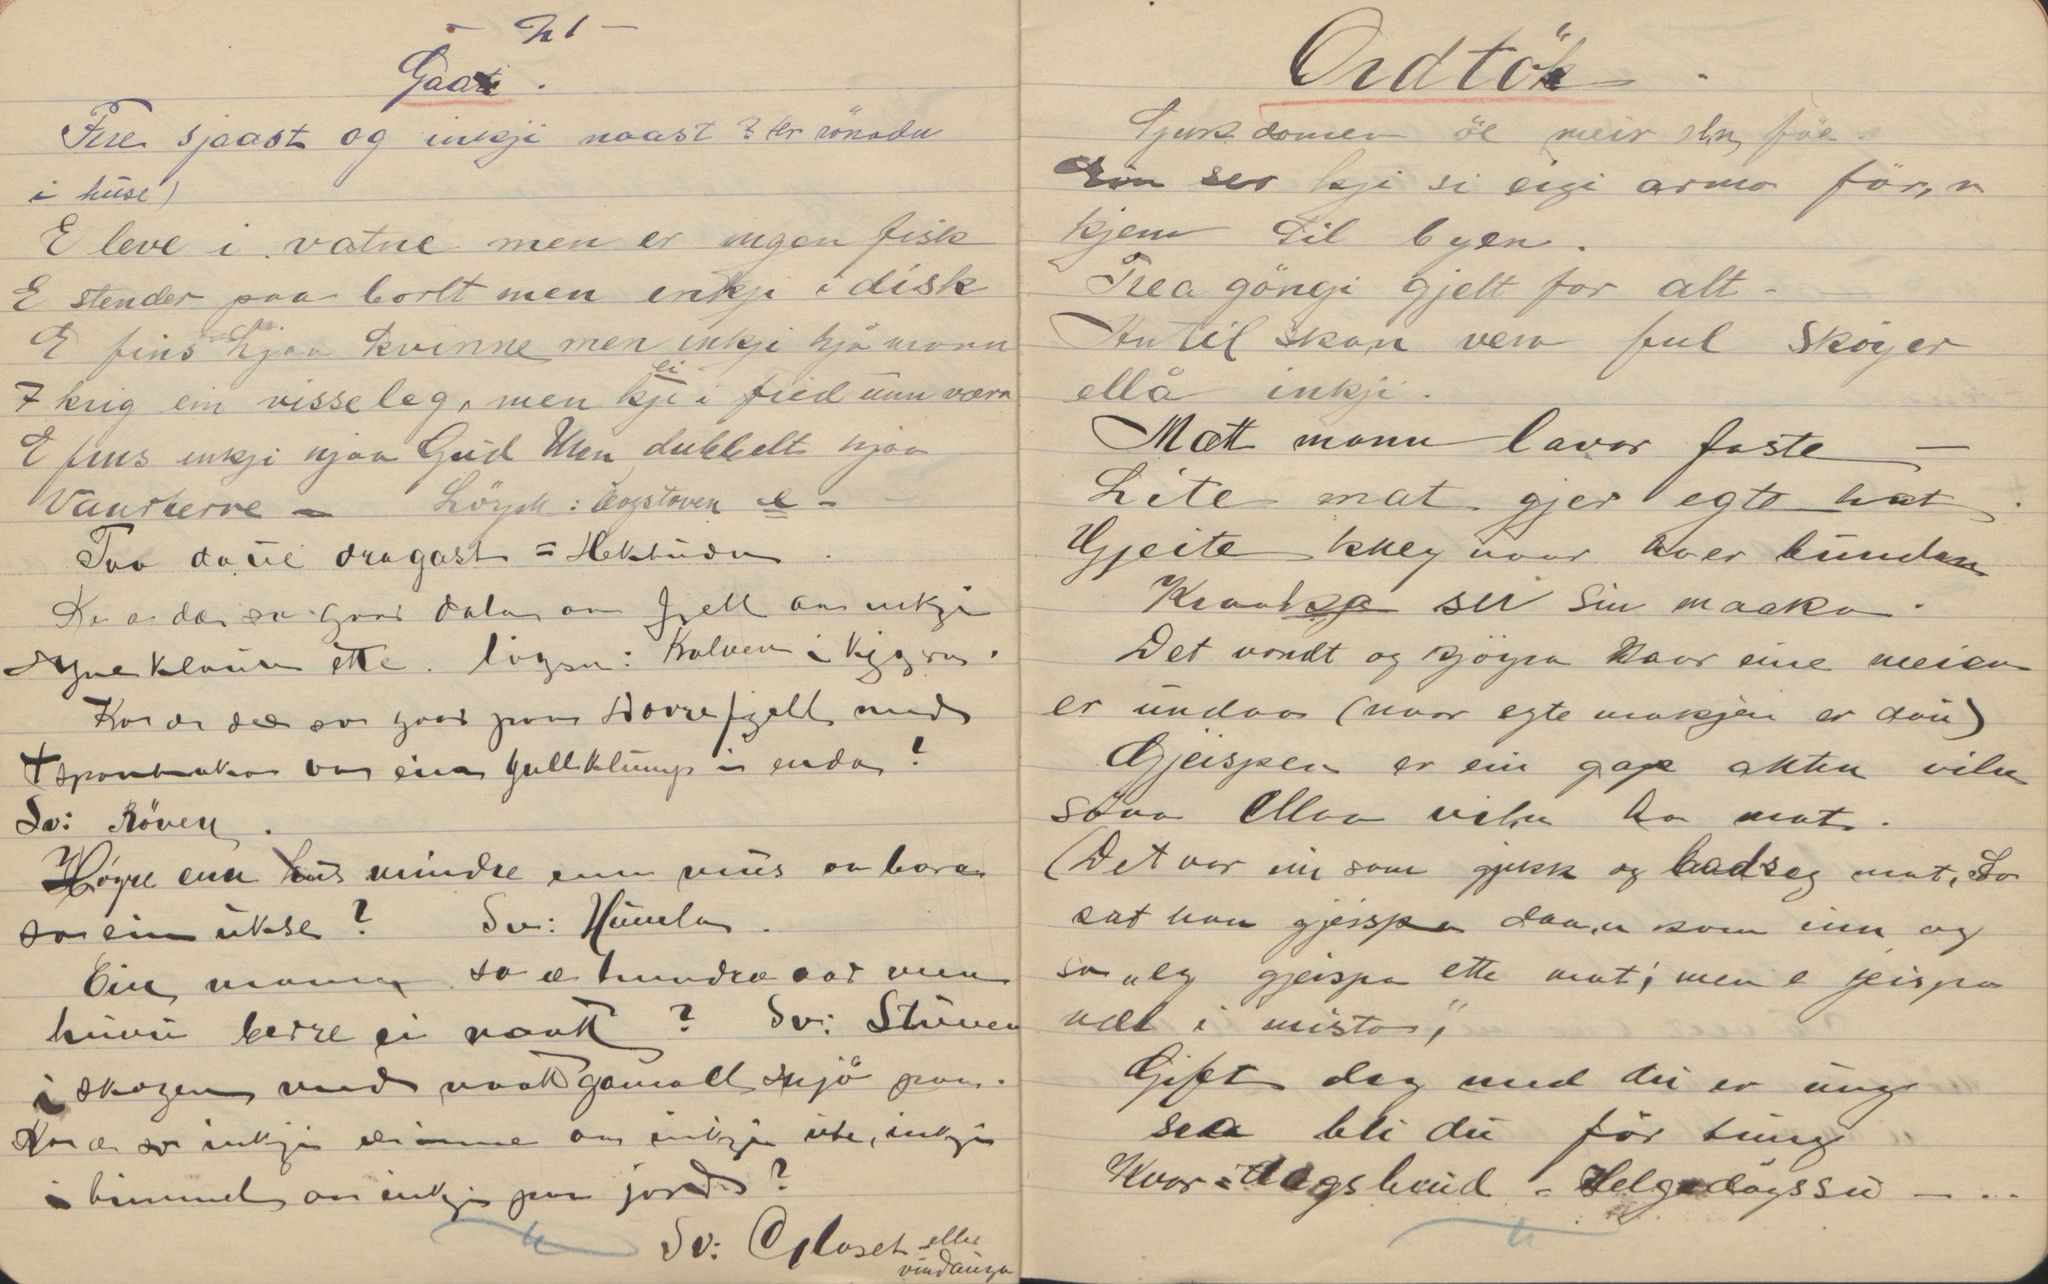 - 21 -
Gaate.
Kre sjaast og inkji naast? Er rönadn
i huse)
E leve i vatne men er ingen fisk
E stender paa bort men inkji i disk
E fins hjaa kvinne men inkji hjå mann
I krig ein visseleg, men kji i fred unn væra
E fins inkji hjaa Gud Men dubbelt hjaa
Vaurherre - Löysn: bogstaven e -
Taa daue dragast =
Ko e dæ so gaar dalar aa fjell aa inkji
syne klauvn ette. löysn: Kalven i kyyrn.
Ko æ dæ so gaar paa Dovrefjell med
ein gullklump i enda?
Sv: Röven.
Høgre enn hus mindre enn mus aa bere
so ein ukse? Sv: Humla.
Ein mann so æ hundre aar men
huvu berre ei naatt? Sv: Stuven
i skogen med naattgamall snjö paa.
Ko æ so inkji inne aa inkji ute, inkji
i himmel aa inkji paa jord?
Sv: Glaset eller
vindauga
Ordtök.
Sjukdomen öe meir eln föe.
Ein ser kji si eigi arma för,n
kjem til byen.
Trea göngi gjelt for alt -
Antil skan vera ful skøyer
ellå inkji.
Mætt mann lavar faste -
Lite mat gjer egte hat.
Gjeite kneg naar ho er bunden
Kraaka ser sin maaka.
Det vondt og kjöyra naar eine meien
er undaa (naar egtemakjen er dau)
Gjeispen er ein gap akten viln
söva ellaa viln ha mat.
(Det var ein som gjekk og bad seg mat, So
sat han gjeispa daa,n kom inn og
sa „eg gjeispa ette mat; men e jeispa
væl i mista",
Gift deg med du er ung
saa bli du för tung
Kvor-dagsbuid - Helgedögssu - ...